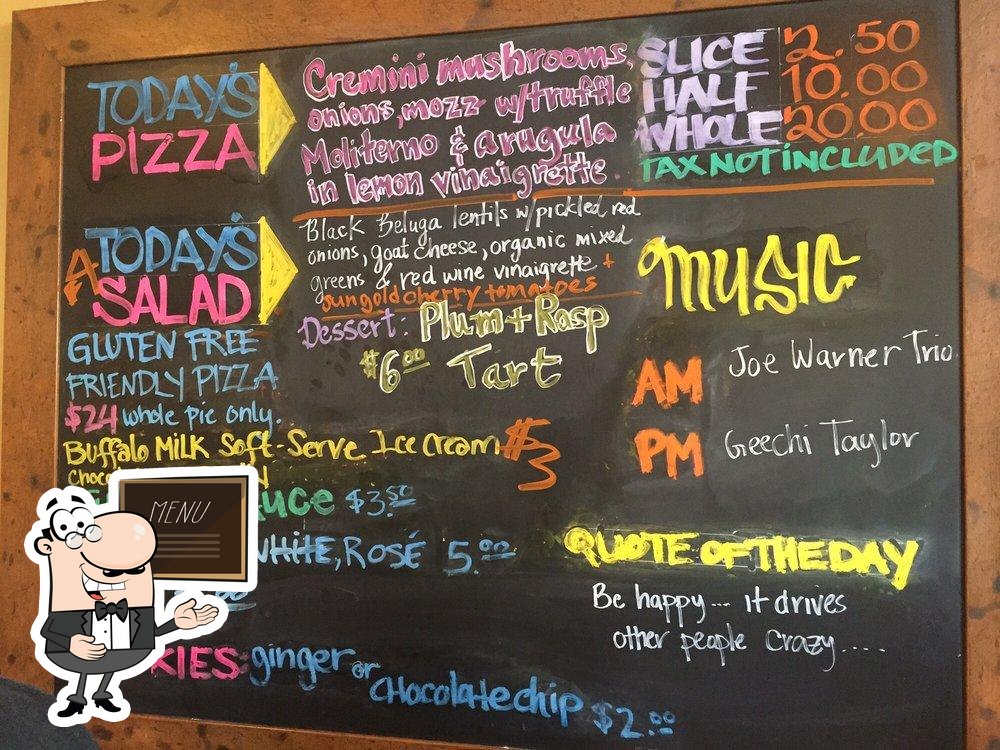 TODAY'S
PIZZA
Cremini mushrooms,
onions, mozz w/truffle
Moliterno & arugula
in lemon vinaigrette.
SLICE 2.50
HALF 10.00
WHOLE 20.00
TAX NOT iNCLUDED
A TODAY'S
SALAD
Black Beluga lentils w/pickled red
onions, goat cheese, organic mixed
greens & red wine vinaigrette +
sungold cherry tomatoes
Dessert: Plum + Rasp
$6.00 Tart
GLUTEN FREE
FRIENDLY PIZZA
$24 whole pie only.
Buffalo MiLK Soft-Serve Ice Cream $3
Choco
auce $3.50
WHITE, ROSÉ 5.00
KIES: ginger or
CHocolate chip $2.00
MUSIC
AM Joe Warner Trio
PM Geechi Taylor
QUOTE OF THE DAY
Be happy... it drives
other people crazy.....
MENU